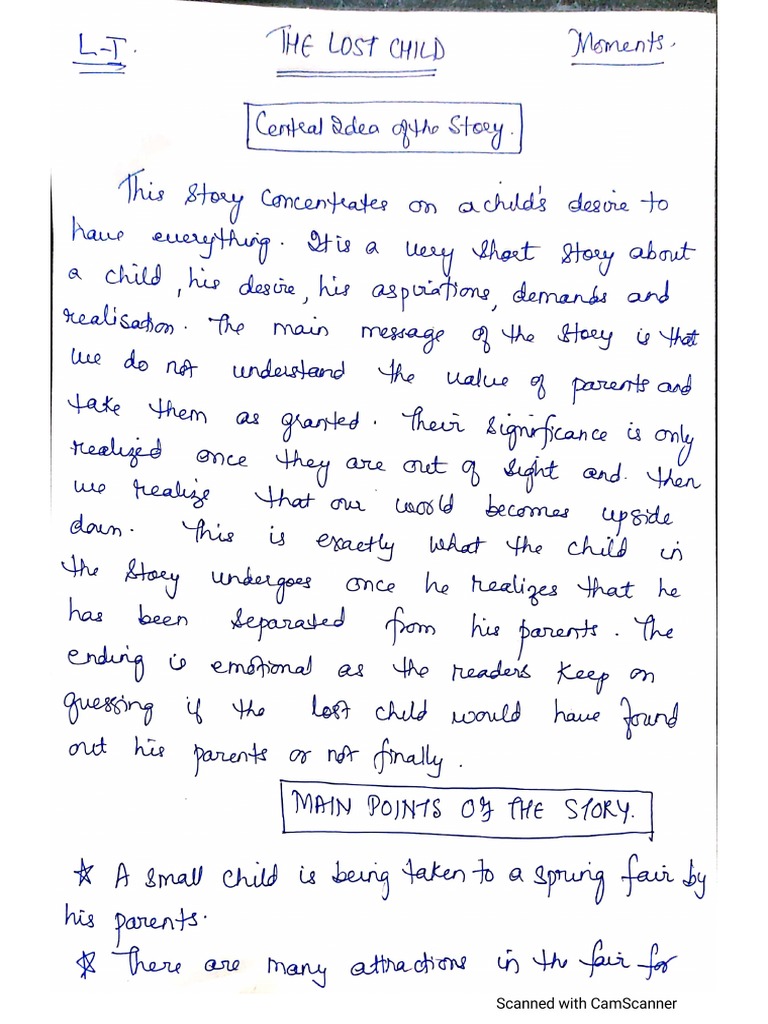 L-I.
THE LOST CHILD
Moments.
Central Idea of the Story.
This Story Concentrates on a child's desire to
have everything. It is a very short story about
a child, his desire, his aspirations, demands and
realisation. The main message of the story is that
we do not understand the value of parents and
take them as granted. Their significance is only
realized once they are out of sight and then
we realize that our world becomes upside
down. This is exactly what the child in
the story undergoes once he realizes that he
has been separated from his parents. The
ending is emotional as the readers keep on
guessing if the lost child would have found
out his parents or not finally.
MAIN POINTS OF THE STORY.
☆ A small child is being taken to a spring fair by
his parents.
☆ There are many attractions in the fair for
Scanned with CamScanner